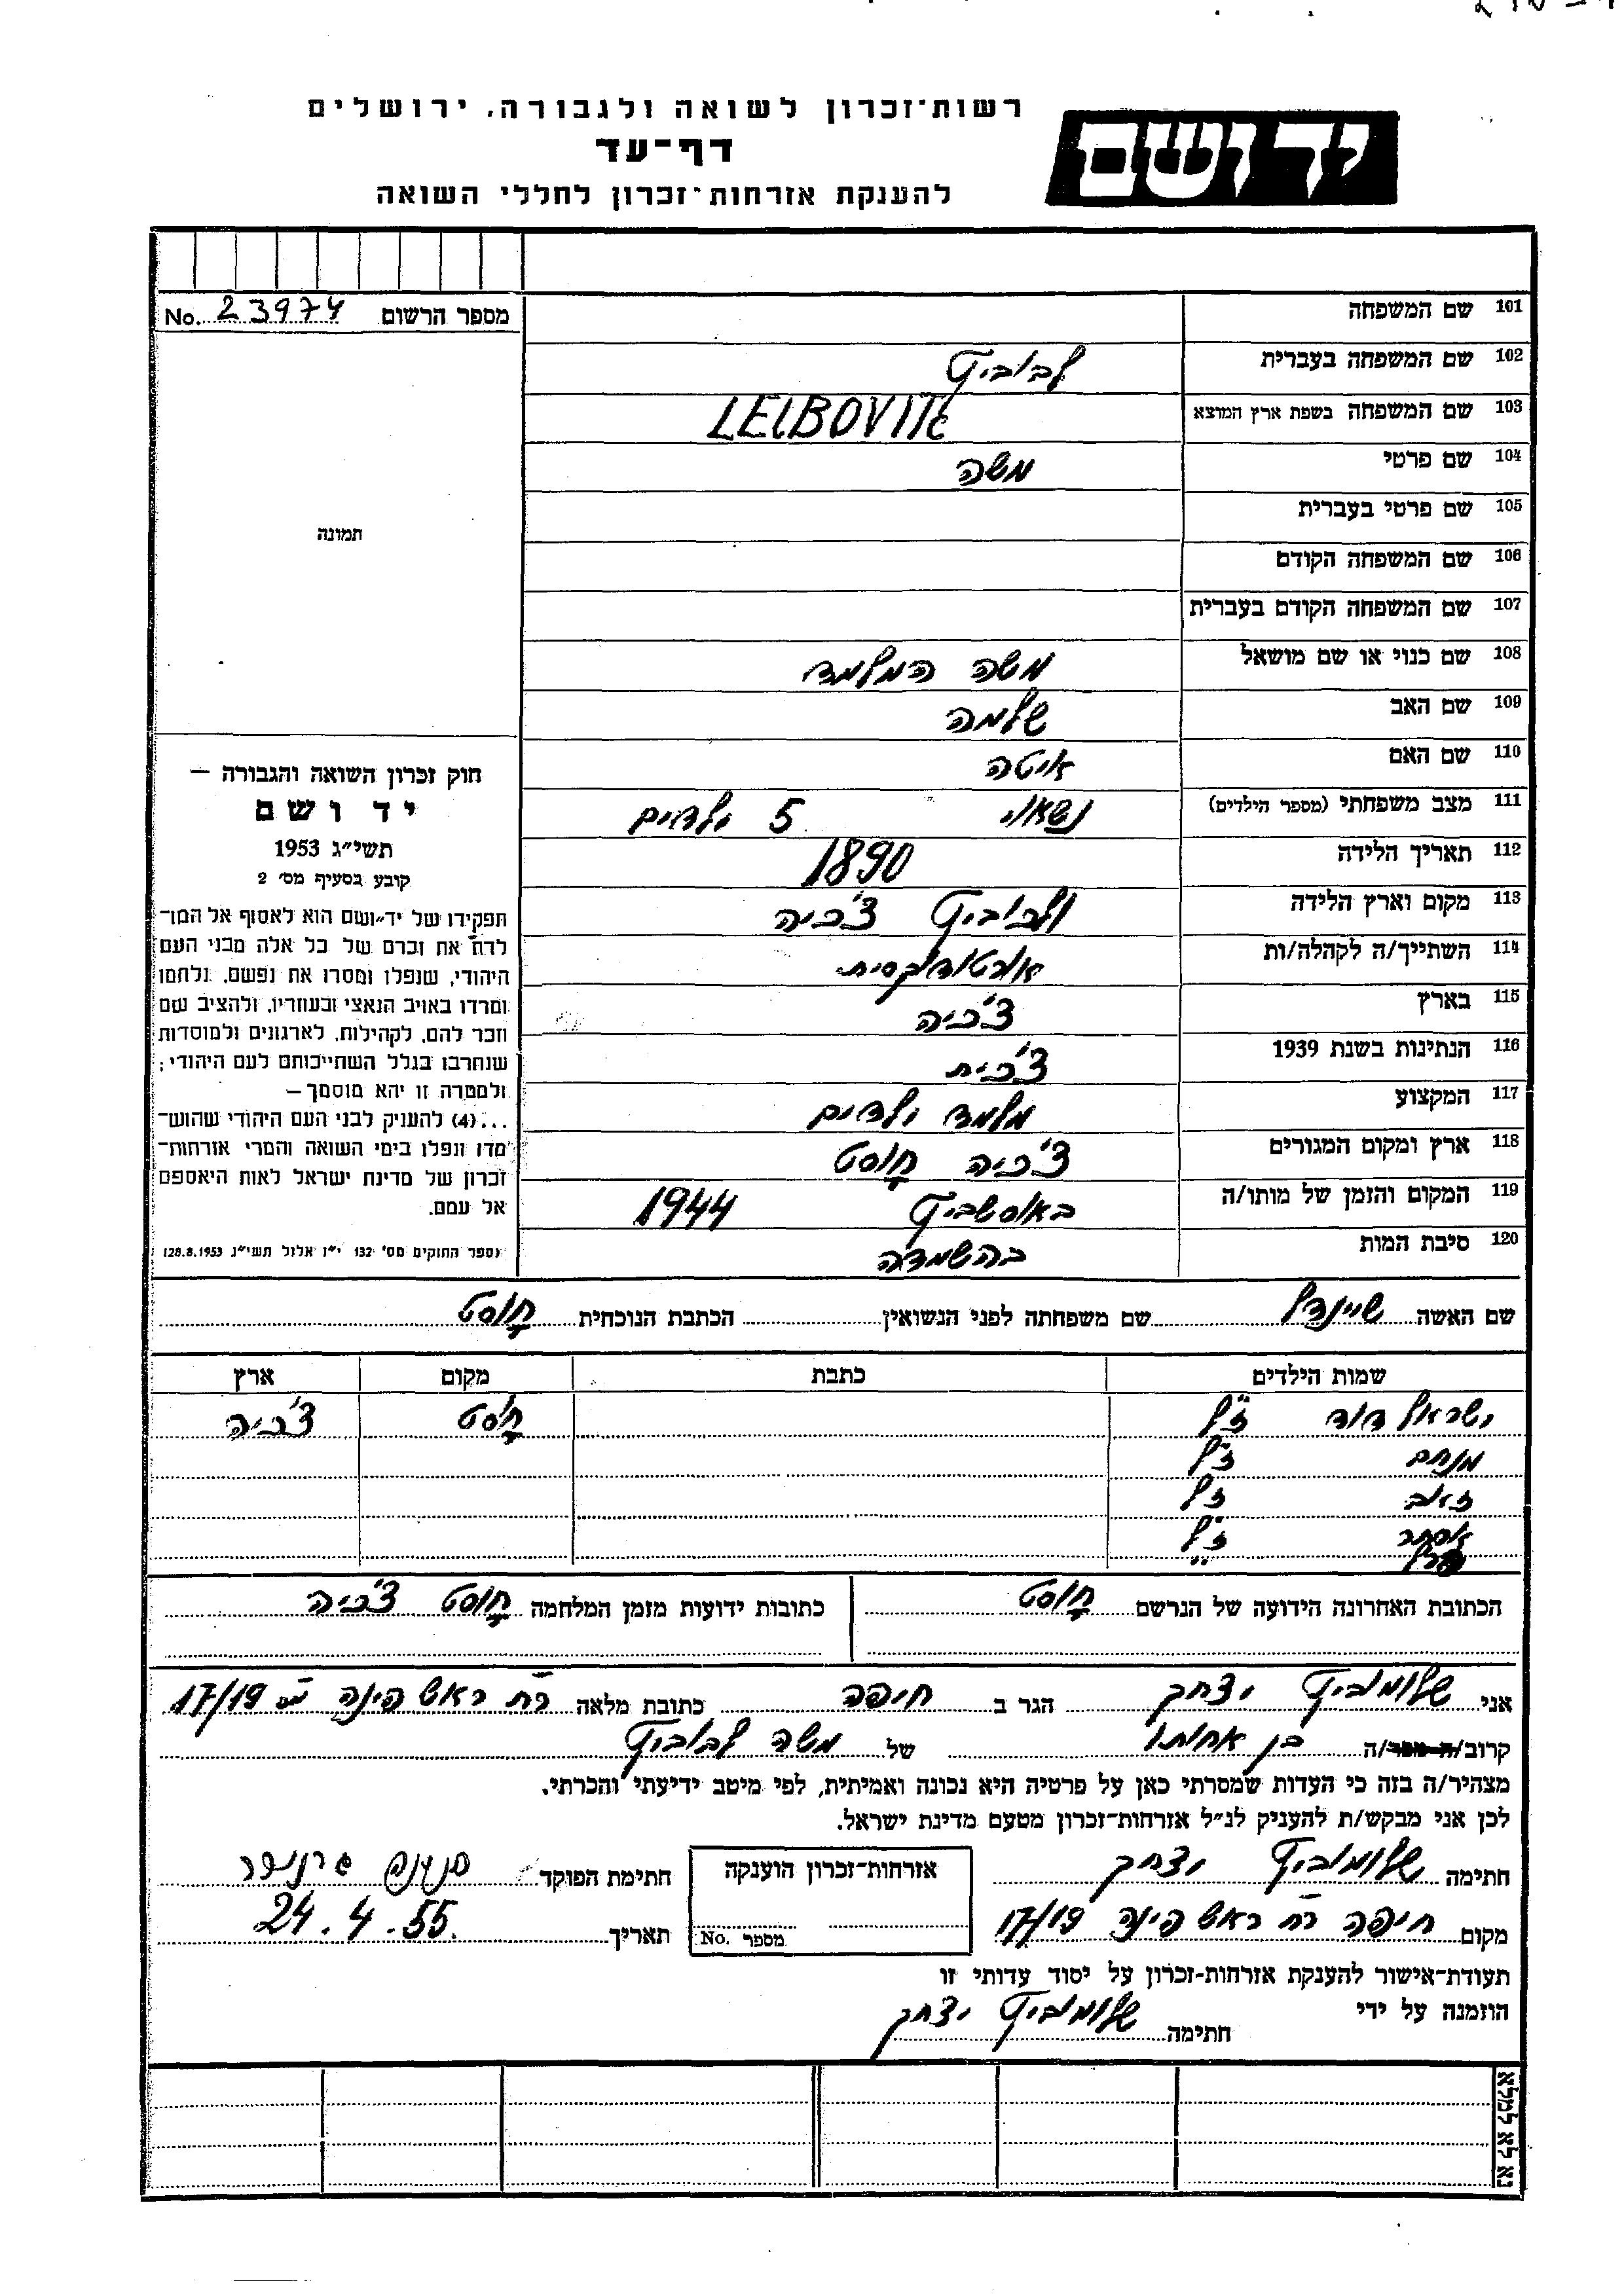 רשות־זכרון לשואה ולגבורה, ירושלים
דף־עד
להענקת אזרחות־זכרון לחללי השואה
יד ושם
מספר הרשום No. 23974
תמונה
101 שם המשפחה
102 שם המשפחה בעברית לבוביץ
103 שם המשפחה בשפת ארץ המוצא LEIBOVITŠ
104 שם פרטי משה
105 שם פרטי בעברית
106 שם המשפחה הקודם
107 שם המשפחה הקודם בעברית
108 שם כנוי או שם מושאל משה המלמד
109 שם האב שלמה
110 שם האם איטה
111 מצב משפחתי (מספר הילדים) נשאוי 5 ילדים
112 תאריך הלידה 1890
113 מקום וארץ הלידה צ'כיה
114 השתייך/ה לקהלה/ות אורטודוקסית
115 בארץ צ'כיה
116 הנתינות בשנת 1939 צ'כית
117 המקצוע מלמד ילדים
118 ארץ ומקום המגורים צ'כיה חוסט
119 המקום והזמן של מותו/ה באושביץ 1944
120 סיבת המות בהשמדה
חוק זכרון השואה והגבורה —
יד ושם
תשי״ג 1953
קובע בסעיף מס׳ 2
תפקידו של יד־ושם הוא לאסוף אל המו־
לדת את זכרם של כל אלה מבני העם
היהודי, שנפלו ומסרו את נפשם, נלחמו
ומרדו באויב הנאצי ובעוזריו, ולהציב שם
וזכר להם, לקהילות, לארגונים ולמוסדות
שנחרבו בגלל השתייכותם לעם היהודי;
ולמטרה זו יהא מוסמך—
...(4) להעניק לבני העם היהודי שהוש־
מדו ונפלו בימי השואה והמרי אזרחות־
זכרון של מדינת ישראל לאות היאספם
אל עמם.
(ספר החוקים מס׳ 132 י״ז אלול תשי״ג 28.8.1953)
שם האשה שיינדל שם משפחתה לפני הנשואין הכתבת הנוכחית חוסט
שמות הילדים כתבת מקום ארץ
ישראל דוד ז"ל חוסט צ'כיה
מנחם ז"ל
זאב ז"ל
אסתר ז"ל
הכתובת האחרונה הידועה של הנרשם חוסט כתובות ידועות מזמן המלחמה חוסט צ'כיה
אני שלומוביץ יצחק הגר ב חיפה כתובת מלאה רח ראש פינה מס 17/19
קרוב/ה בן אחותו של משה לבוביץ
מצהיר/ה בזה כי העדות שמסרתי כאן על פרטיה היא נכונה ואמיתית, לפי מיטב ידיעתי והכרתי.
לכן אני מבקש/ת להעניק לנ״ל אזרחות־זכרון מטעם מדינת ישראל.
חתימה שלומוביץ יצחק אזרחות־זכרון הוענקה חתימת הפוקד
מקום חיפה רח ראש פינה 17/19 מספר No. תאריך 24.4.55.
תעודת־אישור להענקת אזרחות־זכרון על יסוד עדותי זו
הוזמנה על ידי
חתימה שלומוביץ יצחק
נא לא למלא